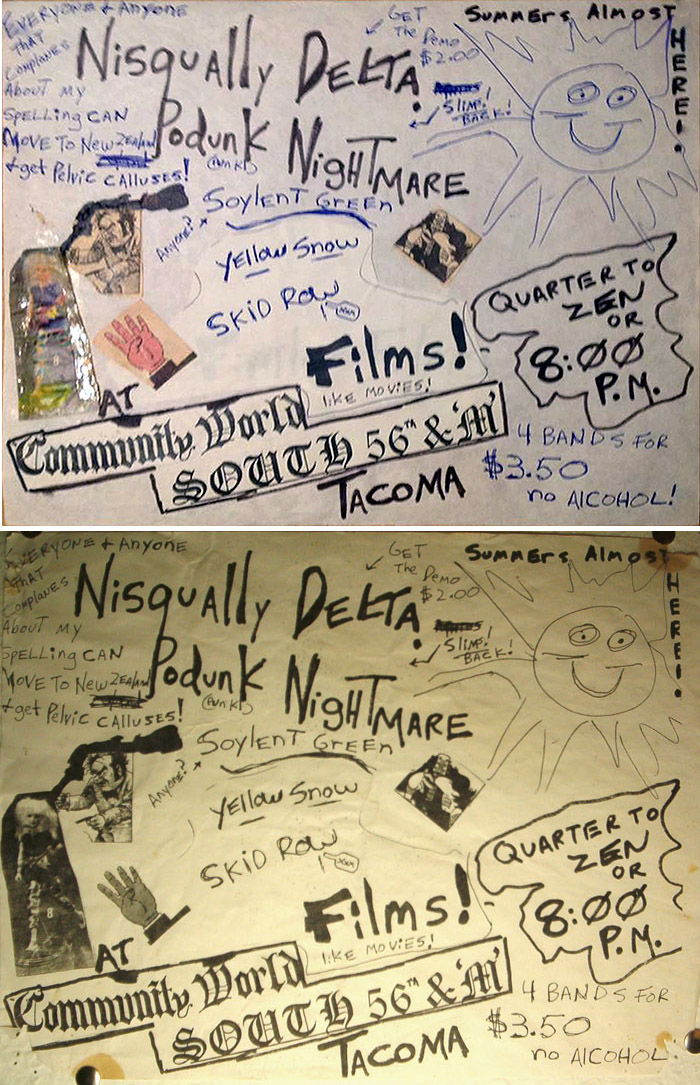 EVERYONE + Anyone
THAT
COMPLANES
About my
SPELLING CAN
MOVE To New ZEALAND
+ get Pelvic CALLUSES!
Nisqually DELTA
Podunk NIGHTMARE
(PUNK)
GET
The Demo
$2.00
SLIMS
BACK!
Summers Almost
HERE!
Anyone?
SOYLENT GREEN
YELLOW SNOW
SKID ROW
Films!
LIKE MOVIES!
QUARTER TO
ZEN
OR
8:00
P.M.
AT
Community World
SOUTH 56th & 'M'
TACOMA
4 BANDS FOR
$3.50
no ALCOHOL!
EVERYONE + Anyone
THAT
COMPLANES
About my
SPELLING CAN
MOVE To New ZEALAND
+ get Pelvic CALLUSES!
Nisqually DELTA
Podunk NIGHTMARE
(PUNK)
GET
The Demo
$2.00
SLIMS
BACK!
Summers Almost
HERE!
Anyone?
SOYLENT GREEN
YELLOW SNOW
SKID ROW
Films!
LIKE MOVIES!
QUARTER TO
ZEN
OR
8:00
P.M.
8
AT
Community World
SOUTH 56th & 'M'
TACOMA
4 BANDS FOR
$3.50
no ALCOHOL!